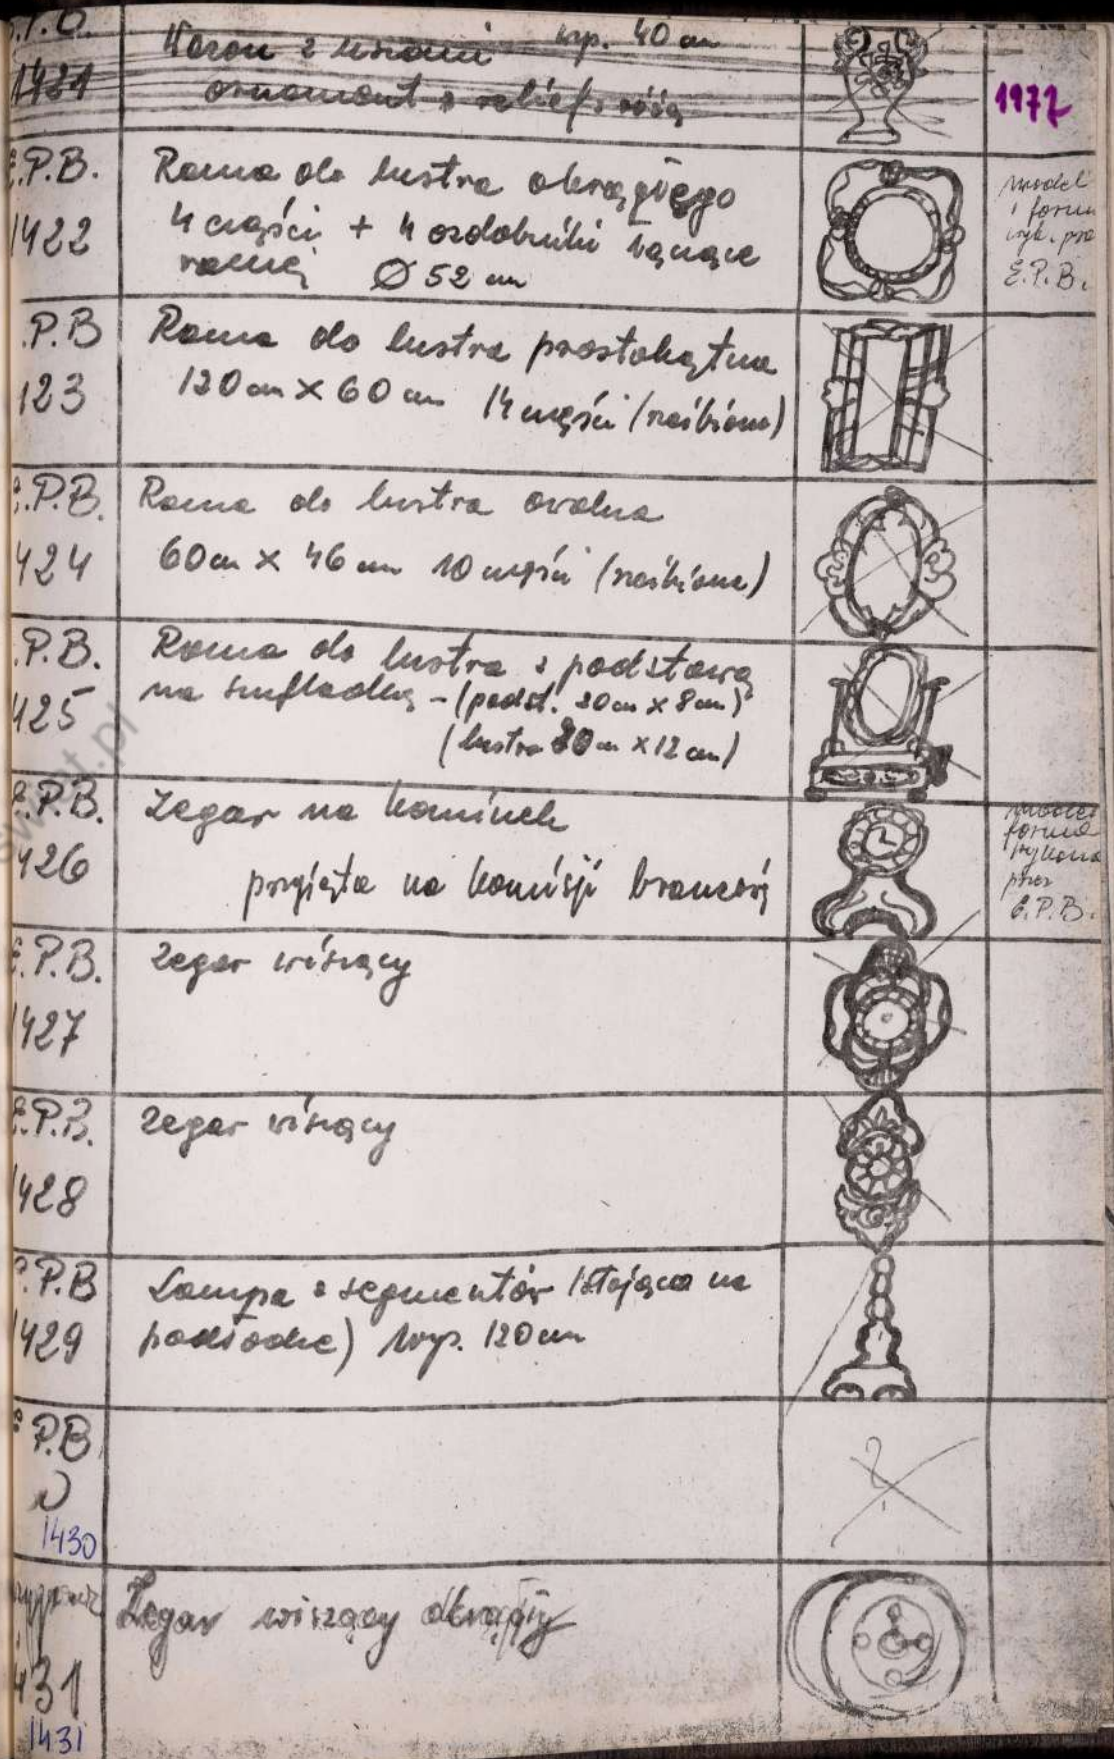 1421
Wazon z uszami wys. 40 cm
ornament z relief. różą
1977
E.P.B.
1422
Rama do lustra okrągłego
4 części + 4 ozdobniki łączące
ramę Ø 52 cm
model
i forma
wyk. prze
E.P.B.
.P.B
123
Rama do lustra prostokątna
120 cm x 60 cm 14 części (rzeźbiona)
E.P.B.
424
Rama do lustra owalna
60 cm x 46 cm 10 części (rzeźbiona)
.P.B.
425
Rama do lustra z podstawą
na szufladkę - (podst. 20 cm x 8 cm)
(lustro 30 cm x 12 cm)
E.P.B.
426
Zegar na kominek
przyjęta na komisji branżowej
model
forma
wykona
przez
E.P.B.
E.P.B.
1427
Zegar wiszący
E.P.B.
1428
Zegar wiszący
.P.B
1429
Lampa z segmentów (stojąca na
podłodze) wys. 120 cm
P.B
1430
?
Zegar wiszący okrągły
431
1431